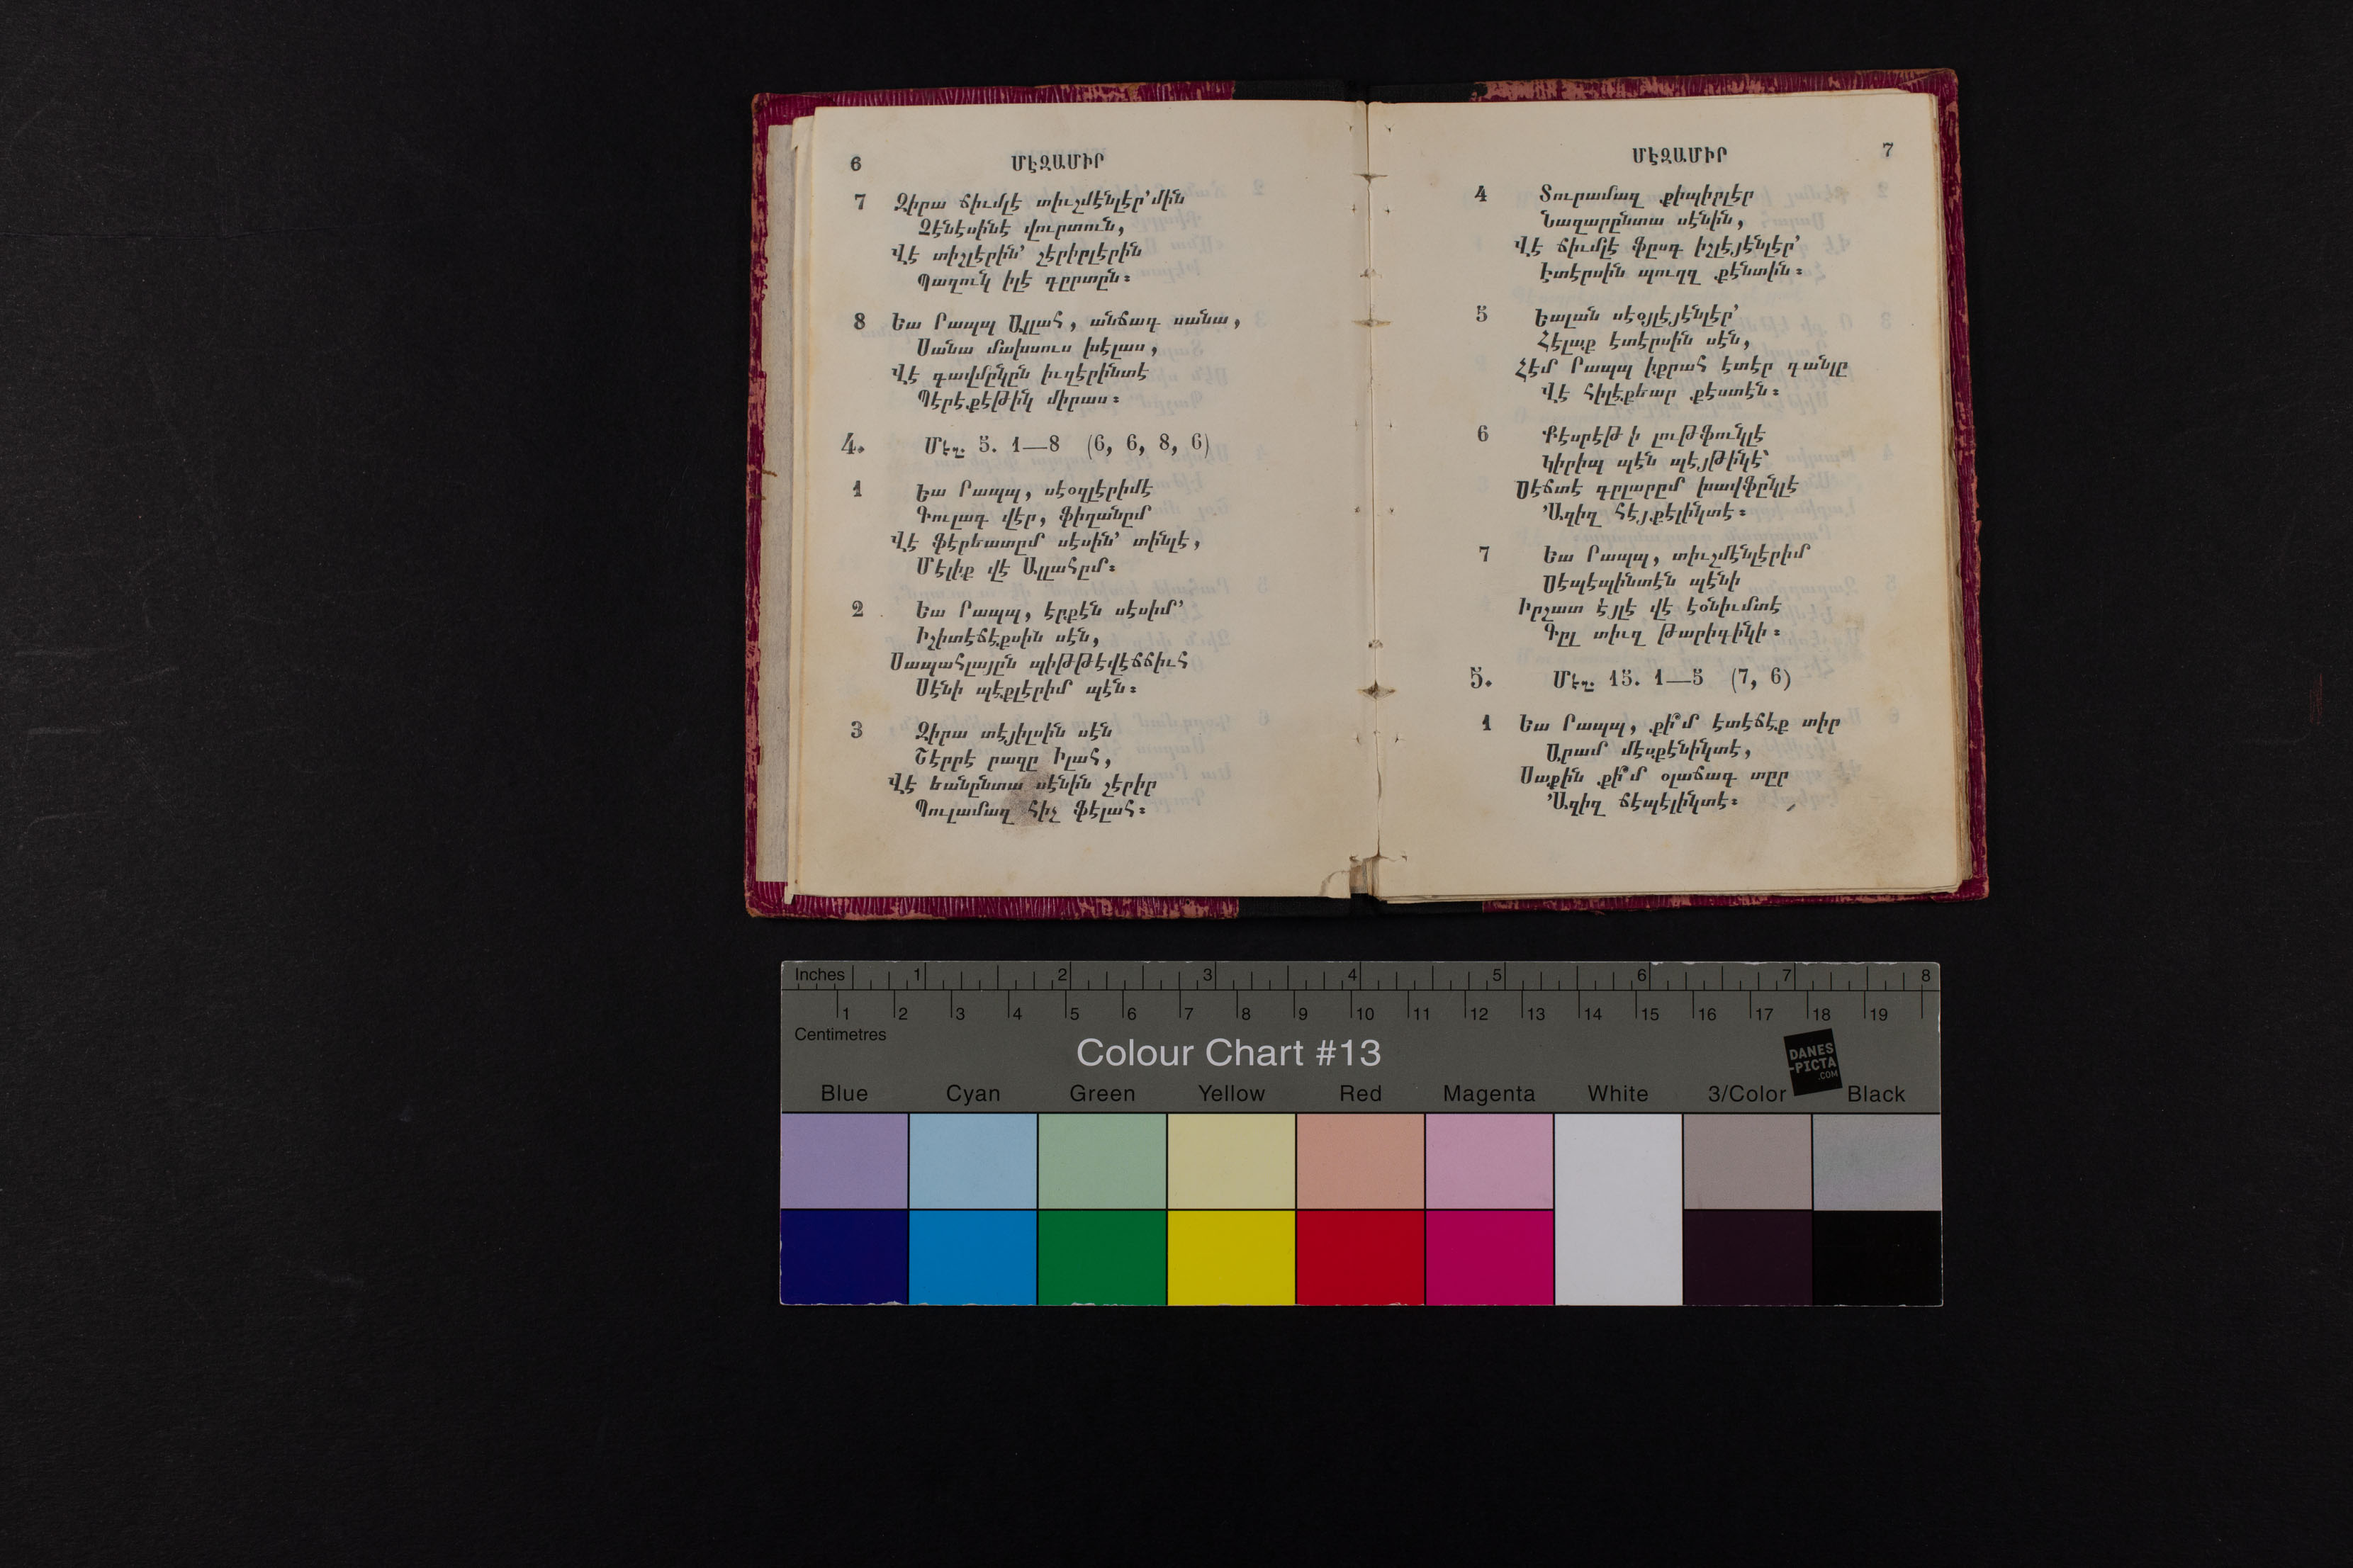 6 ՄԷԶԱՄԻՐ
7 Զիրա ճիւմլէ տիւշմէնլէր՚մին
Չէնէսինէ վուրտուն,
Վէ տիշլէրին՚ շէրիրլէրին
Պաղուկ իլէ գըրտըն։
8 Եա Րապպ Ալլահ, անճագ սանա,
Սանա մախսուս խէլաս,
Վէ գավմըկըն իւզէրինտէ
Պէրէքէթիկ միրաս։
4. Մէզ. 5. 1—8 (6, 6, 8, 6)
1 Եա Րապպ, սէօզլէրիմէ
Գուլագ վէր, ֆիղանըմ
Վէ ֆէրեատըմ սէսին՚ տինլէ,
Մէլիք վէ Ալլահըմ։
2 Եա Րապպ, էրքէն սէսիմ՚
Իշիտէճէքսին սէն,
Սապահլայըն պիթթէվէճճիւհ
Սէնի պէքլէրիմ պէն։
3 Զիրա տէյիլսին սէն
Շէրրէ րազը Իլահ,
Վէ եանընտա սէնին շէրիր
Պուլամազ հիչ ֆէլահ։
ՄԷԶԱՄԻՐ 7
4 Տուրամազ քիպիրլէր
Նազարընտա սէնին,
Վէ ճիւմլէ ֆըսգ իշլէյէնլէր՚
Էտէրսին պուղզ քէնտին։
5 Եալան սէօյլէյէնլէր՚
Հէլաք էտէրսին սէն,
Հէմ Րապպ իքրահ էտէր գանլը
Վէ հիլէքեար քէստէն։
6 Քէսրէթ ի լութֆունկլէ
Կիրիպ պէն պէյթինկէ՝
Սէճտէ գըլարըմ խավֆընկլէ
՚Ազիզ հէյքէլինկտէ։
7 Եա Րապպ, տիւշմէնլէրիմ
Սէպէպինտէն պէնի
Իրշատ էյլէ վէ էօնիւմտէ
Գըլ տիւզ թարիգինկի։
5. Մէզ. 15. 1—5 (7, 6)
1 Եա Րապպ, քի՞մ էտէճէք տիր
Արամ մէսքէնինկտէ,
Սաքին քի՞մ օլաճագ տըր
՚Ազիզ ճէպէլինկտէ։
Inches 1 2 3 4 5 6 7 8
1 2 3 4 5 6 7 8 9 10 11 12 13 14 15 16 17 18 19
Centimetres
Colour Chart #13
DANES
-PICTA
.COM
Blue Cyan Green Yellow Red Magenta White 3/Color Black